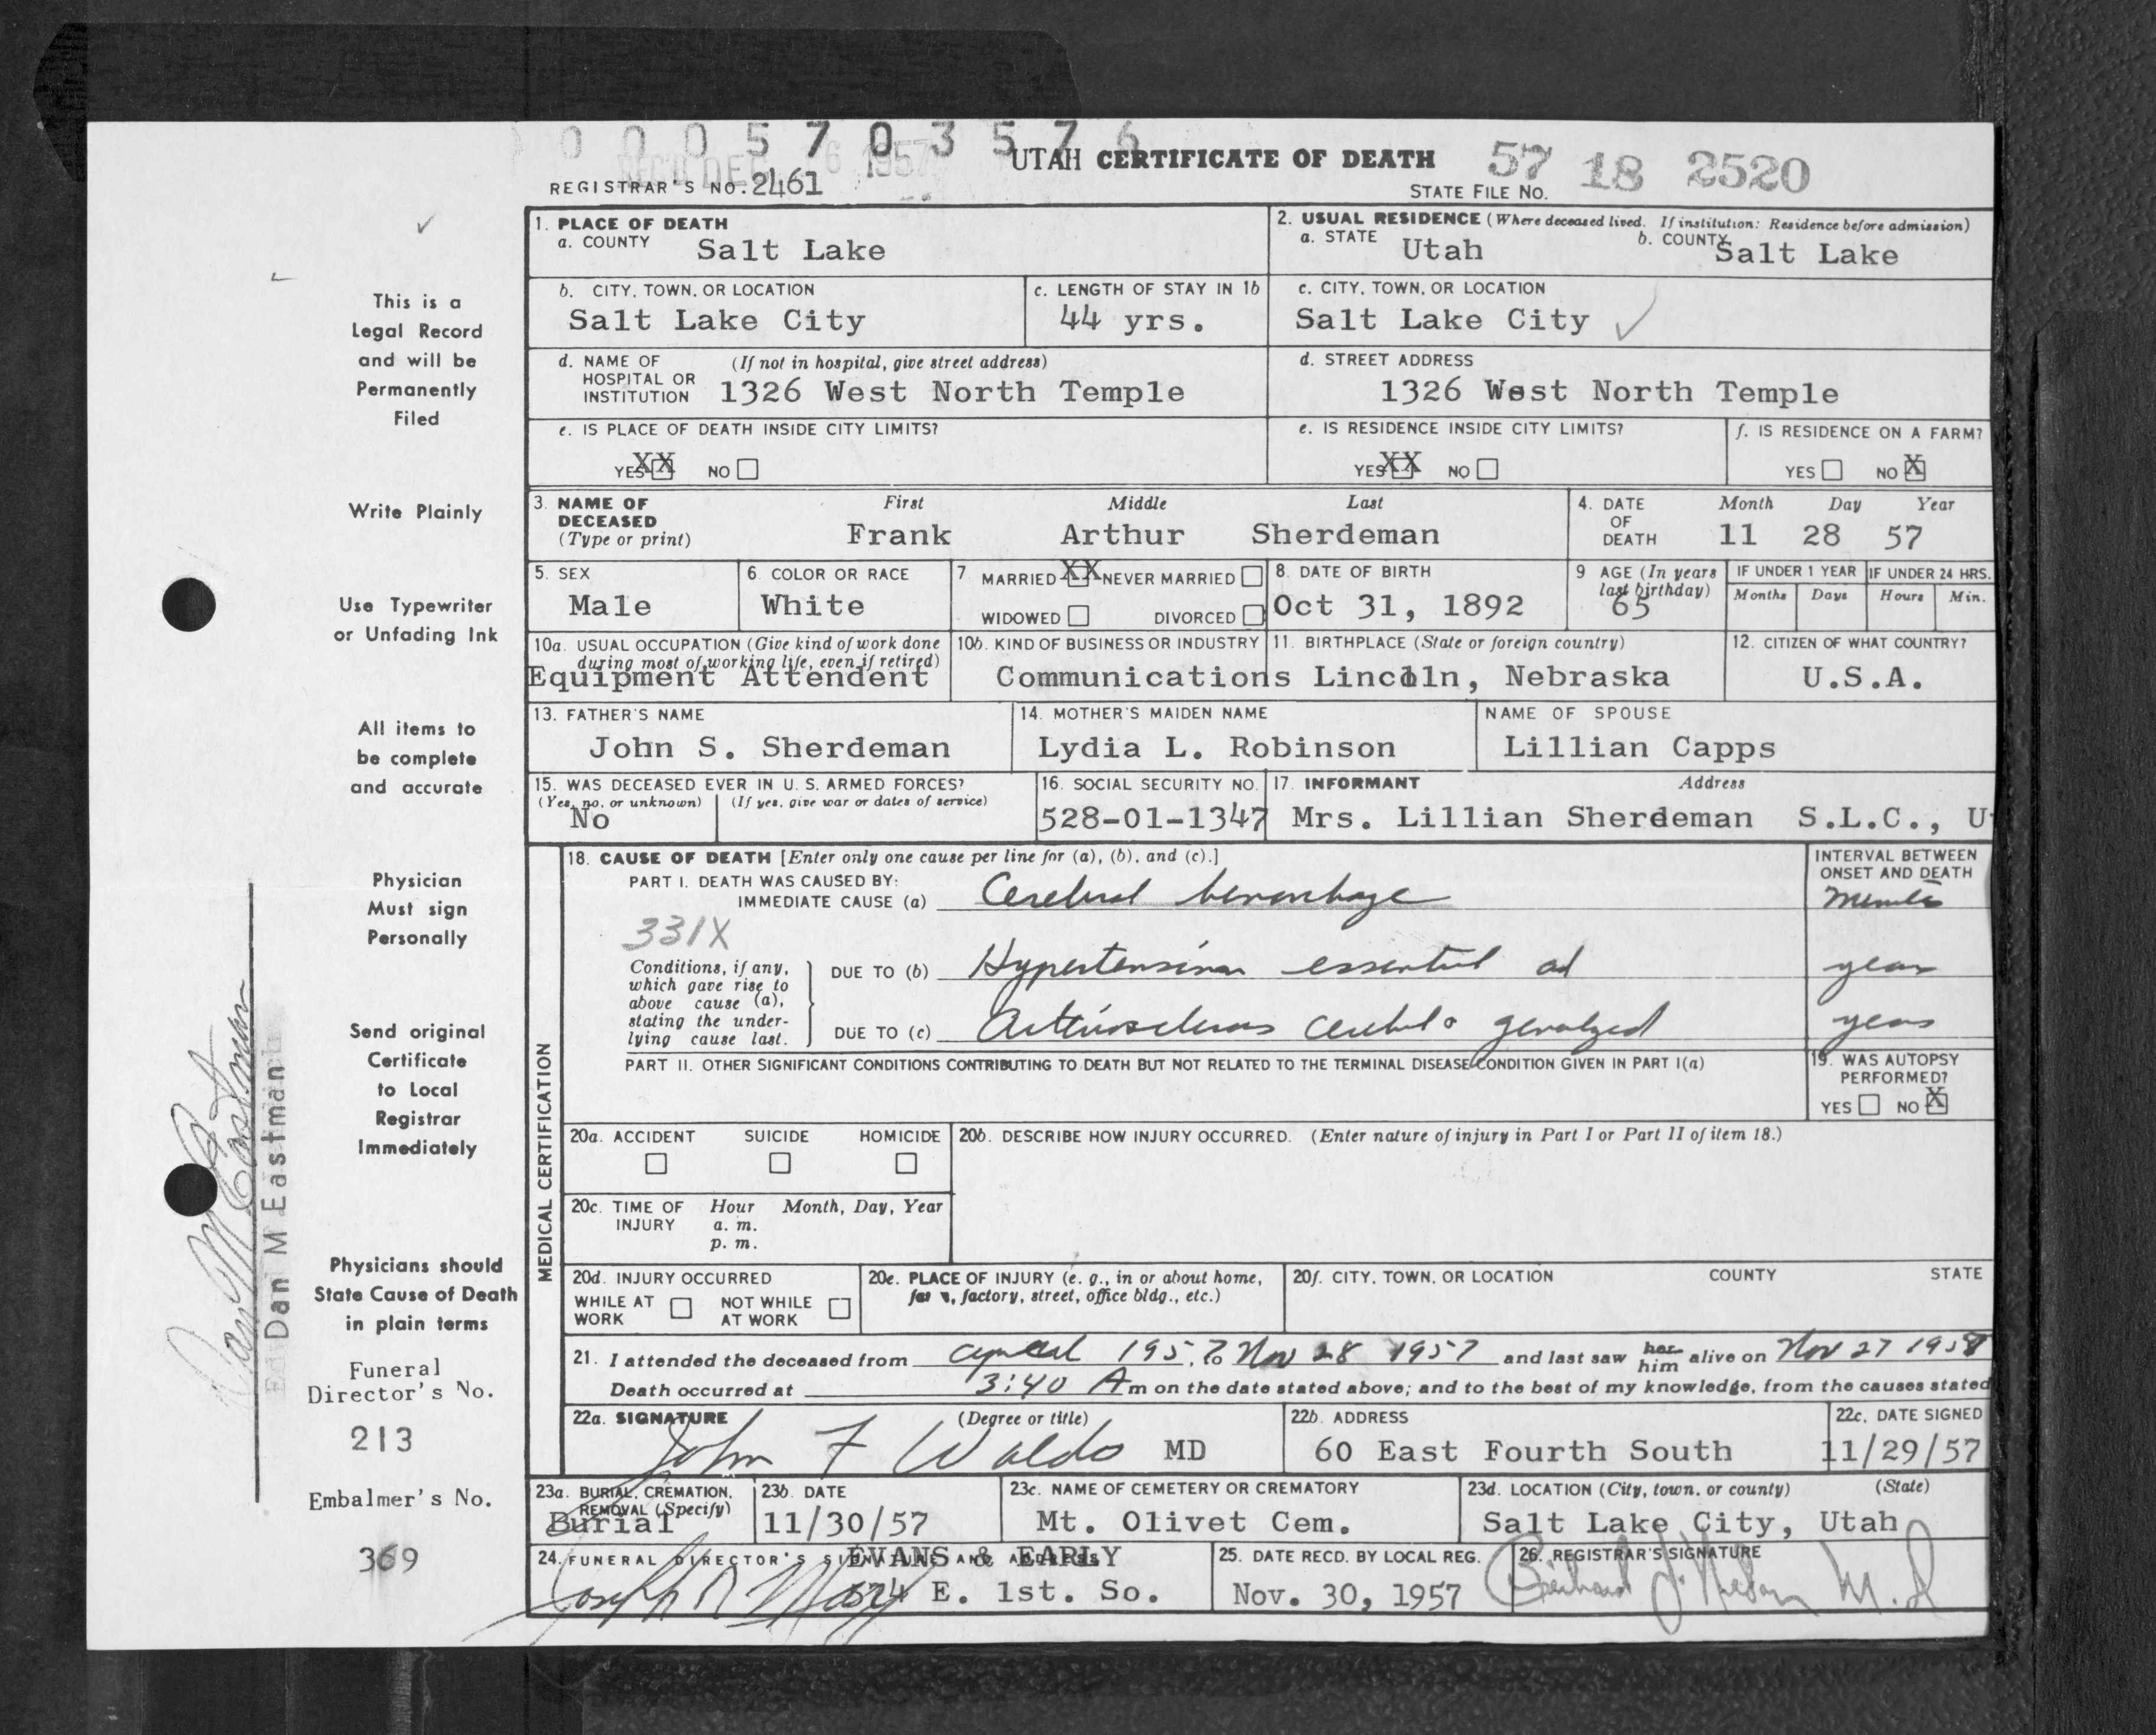 0 0 0 5 7 0 3 5 7 6
REC'D DEC 6 1957
UTAH CERTIFICATE OF DEATH 57 18 2520
REGISTRAR'S NO. 2461 STATE FILE NO.
1. PLACE OF DEATH
a. COUNTY Salt Lake
2. USUAL RESIDENCE (Where deceased lived. If institution: Residence before admission)
a. STATE Utah b. COUNTY Salt Lake
b. CITY, TOWN, OR LOCATION
Salt Lake City
c. LENGTH OF STAY IN 1b
44 yrs.
c. CITY, TOWN, OR LOCATION
Salt Lake City
d. NAME OF HOSPITAL OR INSTITUTION (If not in hospital, give street address)
1326 West North Temple
d. STREET ADDRESS
1326 West North Temple
e. IS PLACE OF DEATH INSIDE CITY LIMITS?
YES XX NO
e. IS RESIDENCE INSIDE CITY LIMITS?
YES XX NO
f. IS RESIDENCE ON A FARM?
YES NO X
3. NAME OF DECEASED (Type or print)
First Middle Last
Frank Arthur Sherdeman
4. DATE OF DEATH
Month Day Year
11 28 57
5. SEX
Male
6. COLOR OR RACE
White
7 MARRIED XX NEVER MARRIED
WIDOWED DIVORCED
8. DATE OF BIRTH
Oct 31, 1892
9 AGE (In years last birthday)
65
IF UNDER 1 YEAR
Months Days
IF UNDER 24 HRS.
Hours Min.
10a. USUAL OCCUPATION (Give kind of work done during most of working life, even if retired)
Equipment Attendent
10b. KIND OF BUSINESS OR INDUSTRY
Communications
11. BIRTHPLACE (State or foreign country)
Lincoln, Nebraska
12. CITIZEN OF WHAT COUNTRY?
U.S.A.
13. FATHER'S NAME
John S. Sherdeman
14. MOTHER'S MAIDEN NAME
Lydia L. Robinson
NAME OF SPOUSE
Lillian Capps
15. WAS DECEASED EVER IN U. S. ARMED FORCES?
(Yes, no, or unknown) (If yes, give war or dates of service)
No
16. SOCIAL SECURITY NO.
528-01-1347
17. INFORMANT Address
Mrs. Lillian Sherdeman S.L.C., U
MEDICAL CERTIFICATION
18. CAUSE OF DEATH [Enter only one cause per line for (a), (b), and (c).]
INTERVAL BETWEEN ONSET AND DEATH
PART I. DEATH WAS CAUSED BY:
IMMEDIATE CAUSE (a) Cerebral hemorrhage
331X
Conditions, if any, which gave rise to above cause (a), stating the underlying cause last.
DUE TO (b) Hypertension essential years
DUE TO (c) Arteriosclerosis generalized years
PART II. OTHER SIGNIFICANT CONDITIONS CONTRIBUTING TO DEATH BUT NOT RELATED TO THE TERMINAL DISEASE CONDITION GIVEN IN PART I(a)
19. WAS AUTOPSY PERFORMED?
YES NO X
20a. ACCIDENT SUICIDE HOMICIDE
20b. DESCRIBE HOW INJURY OCCURRED. (Enter nature of injury in Part I or Part II of item 18.)
20c. TIME OF INJURY Hour Month, Day, Year
a. m.
p. m.
20d. INJURY OCCURRED
WHILE AT WORK NOT WHILE AT WORK
20e. PLACE OF INJURY (e. g., in or about home, farm, factory, street, office bldg., etc.)
20f. CITY, TOWN, OR LOCATION COUNTY STATE
21. I attended the deceased from 1957, to Nov 28 1957 and last saw her him alive on Nov 27 1957
Death occurred at 3:40 A m on the date stated above; and to the best of my knowledge, from the causes stated
22a. SIGNATURE (Degree or title)
John F Waldo MD
22b. ADDRESS
60 East Fourth South
22c. DATE SIGNED
11/29/57
23a. BURIAL, CREMATION, REMOVAL (Specify)
Burial
23b. DATE
11/30/57
23c. NAME OF CEMETERY OR CREMATORY
Mt. Olivet Cem.
23d. LOCATION (City, town, or county) (State)
Salt Lake City, Utah
24. FUNERAL DIRECTOR'S SIGNATURE AND ADDRESS
EVANS & EARLY
574 E. 1st. So.
25. DATE RECD. BY LOCAL REG.
Nov. 30, 1957
26. REGISTRAR'S SIGNATURE
M.D
This is a
Legal Record
and will be
Permanently
Filed
Write Plainly
Use Typewriter
or Unfading Ink
All items to
be complete
and accurate
Physician
Must sign
Personally
Send original
Certificate
to Local
Registrar
Immediately
Physicians should
State Cause of Death
in plain terms
Funeral
Director's No.
213
Embalmer's No.
369
Dan M Eastman
Dan M Eastman